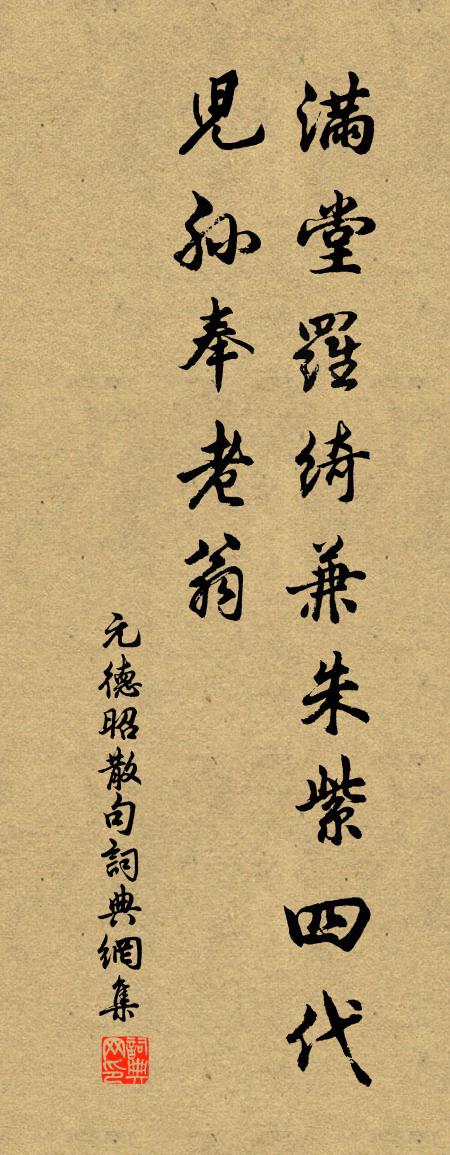 滿堂羅綺兼朱紫四代
兒孫奉老翁
元德昭散句詞典網集
詞典网印